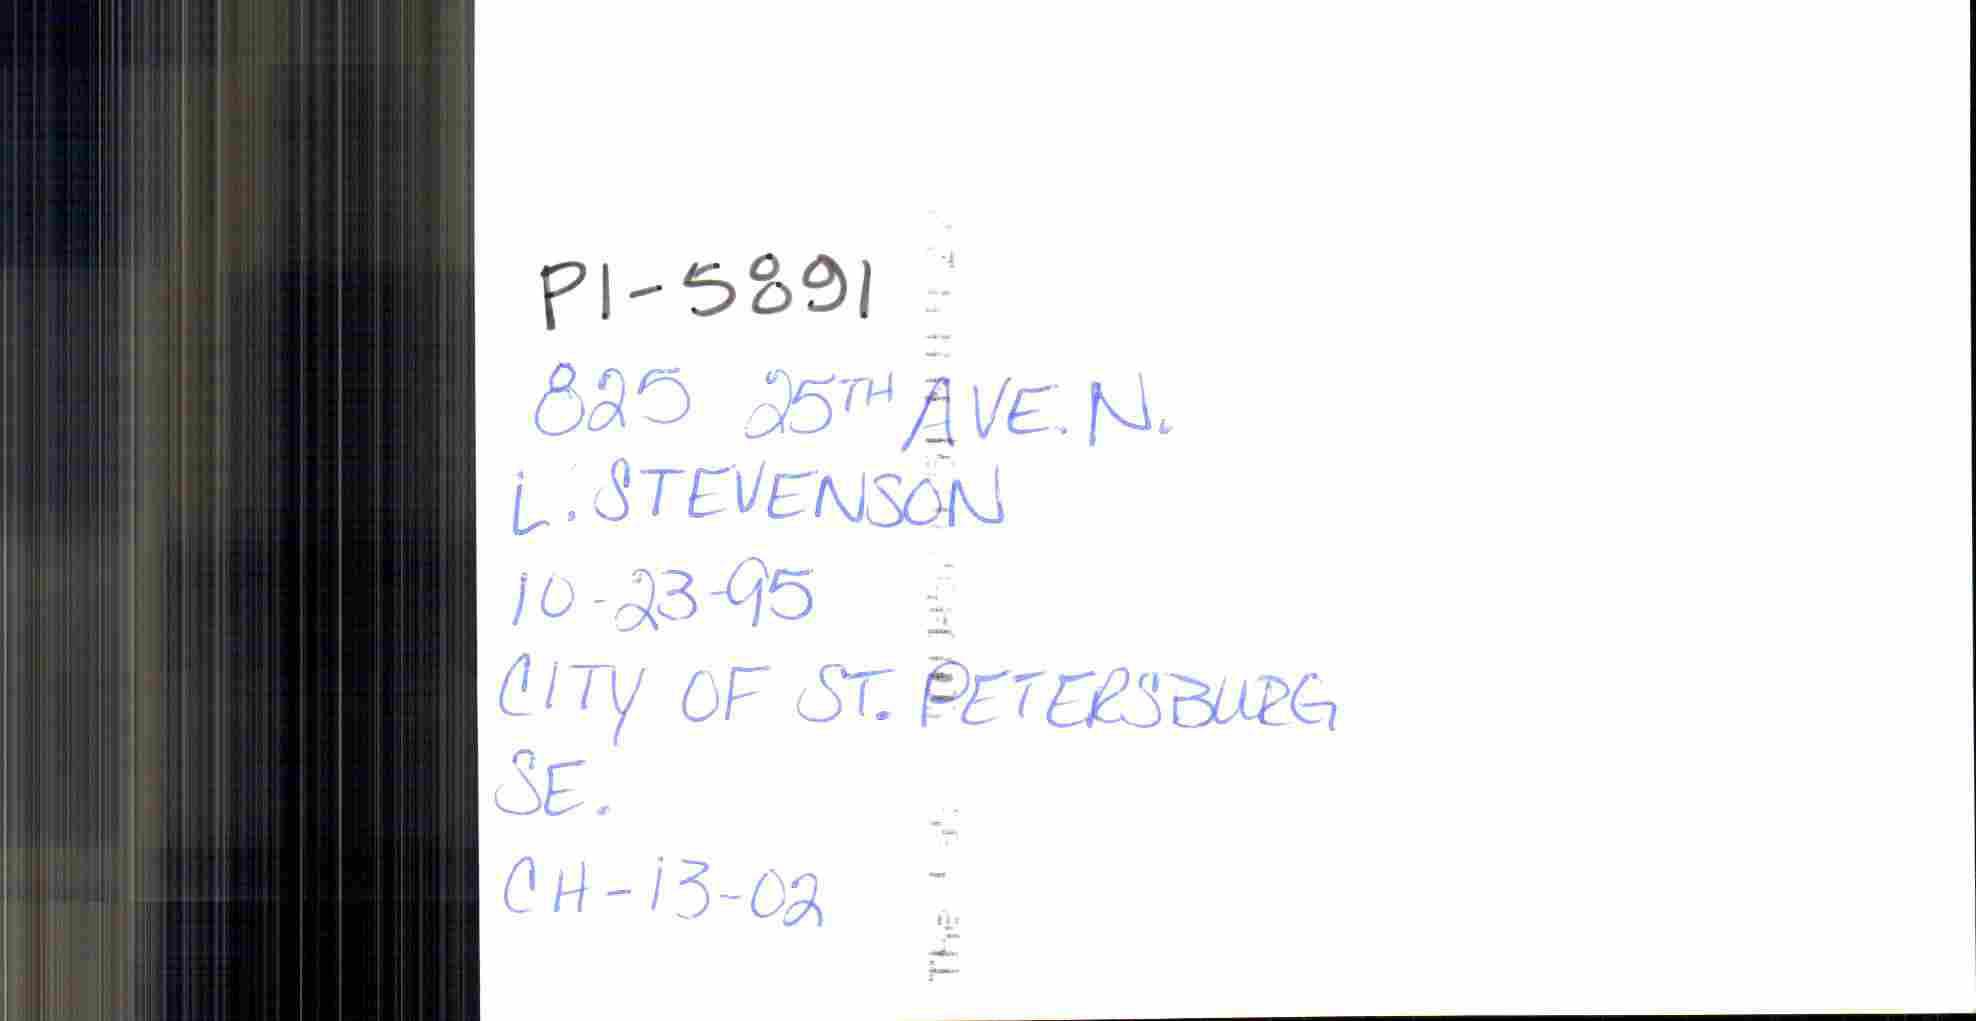 P1-5891
825 25TH AVE. N.
L. STEVENSON
10-23-95
CITY OF ST. PETERSBURG
SE.
CH-13-02